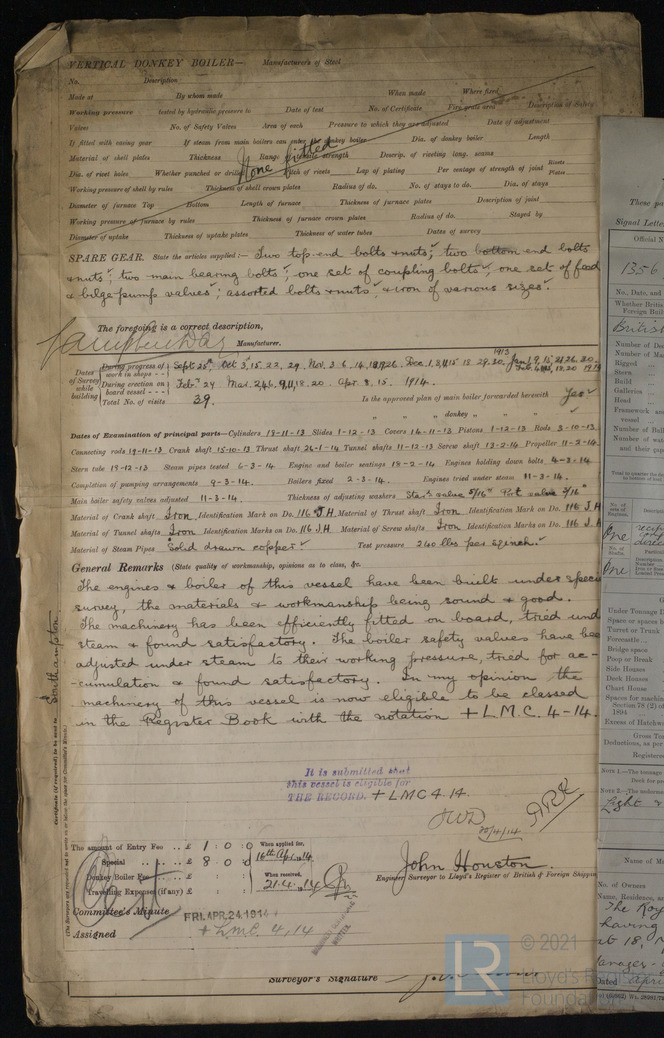 VERTICAL DONKEY BOILER— Manufacturers of Steel
No. Description
Made at By whom made When made Where fixed
Working pressure tested by hydraulic pressure to Date of test No. of Certificate Fire grate area Description of Safety
Valves No. of Safety Valves Area of each Pressure to which they are adjusted Date of adjustment
If fitted with easing gear If steam from main boilers can enter the donkey boiler Dia. of donkey boiler Length
Material of shell plates Thickness Range of tensile strength Descrip. of riveting long. seams
None fitted
Dia. of rivet holes Whether punched or drilled Pitch of rivets Lap of plating Per centage of strength of joint Rivets Plates
Working pressure of shell by rules Thickness of shell crown plates Radius of do. No. of stays to do. Dia. of stays
Diameter of furnace Top Bottom Length of furnace Thickness of furnace plates Description of joint
Working pressure of furnace by rules Thickness of furnace crown plates Radius of do. Stayed by
Diameter of uptake Thickness of uptake plates Thickness of water tubes Dates of survey
SPARE GEAR. State the articles supplied:— Two top-end bolts & nuts; two bottom end bolts
& nuts; two main bearing bolts; one set of coupling bolts; one set of feed
& bilge pump valves; assorted bolts & nuts; & iron of various sizes.
The foregoing is a correct description,
Manufacturer.
Dates of Survey while building
During progress of work in shops - - Sept 25th Oct 3, 15. 22, 29 Nov. 3 6. 14, 18, 19, 26 Dec. 1, 8, 11, 15 18 29. 30. 1913
During erection on board vessel - - - Feb. 24 Mar. 2, 4, 6. 9, 11, 18. 20. Apr. 8, 15, 1914.
Total No. of visits 39. Is the approved plan of main boiler forwarded herewith Yes
" " " donkey " "
Dates of Examination of principal parts—Cylinders 19-11-13 Slides 1-12-13 Covers 14-11-13 Pistons 1-12-13 Rods 3-10-13
Connecting rods 19-11-13 Crank shaft 15-10-13 Thrust shaft 26-1-14 Tunnel shafts 11-12-13 Screw shaft 13-2-14 Propeller 11-2-14
Stern tube 19-12-13 Steam pipes tested 6-3-14 Engine and boiler seatings 18-2-14 Engines holding down bolts 4-3-14
Completion of pumping arrangements 9-3-14 Boilers fixed 2-3-14. Engines tried under steam 11-3-14.
Main boiler safety valves adjusted 11-3-14 Thickness of adjusting washers Star. valve 5/16" Port valve 5/16"
Material of Crank shaft Iron Identification Mark on Do. 116 J.H Material of Thrust shaft Iron Identification Mark on Do. 116 J.H
Material of Tunnel shafts Iron Identification Marks on Do. 116 J.H Material of Screw shafts Iron Identification Marks on Do. 116 J.H
Material of Steam Pipes Solid drawn copper Test pressure 240 lbs per sq inch.
General Remarks (State quality of workmanship, opinions as to class, &c.
The engines & boiler of this vessel have been built under
survey, the materials & workmanship being sound & good.
The machinery has been efficiently fitted on board, tried
steam & found satisfactory. The boiler safety valves have
adjusted under steam to their working pressure, tried for ac-
-cumulation & found satisfactory. In my opinion the
machinery of this vessel is now eligible to be classed
in the Register Book with the notation + L.M.C. 4-14.
Certificate (if required) to be sent to Southampton
It is submitted that
this vessel is eligible for
THE RECORD. + LMC 4.14.
The amount of Entry Fee .. £ 1 : 0 : 0 When applied for,
Special .. .. £ 8 : 0 : 0 16th Apl. 1914
Donkey Boiler Fee .. .. £ : : When received,
Travelling Expenses (if any) £ : : 21.4.1914
John Houston.
Engineer Surveyor to Lloyd's Register of British & Foreign Shipping
Committee's Minute FRI. APR. 24. 1914
Assigned + LMC. 4.14
Surveyor's Signature
Signal Letter
Official N
1356
No., Date, and
Whether Britis
Foreign Buil
British
Number of Dec
Number of Ma
Rigged
Stern
Build
Galleries
Head
Framework and
Number of Bulk
Number of wat
One
One
Under Tonnage D
Space or spaces b
Turret or Trunk
Forecastle
Bridge space
Poop or Break
Side Houses
Deck Houses
Chart House
Spaces for machin
Section 78 (2) of
1894
Excess of Hatchw
Gross To
Deductions, as per
Register
NOTE 1.—The tonnage
NOTE 2.—The undermen
Light &
Name of M
No. of Owners
Name, Residence, an
The Roy
having
at 18,
Manager-
Dated April
LR
© 2021
Lloyd's Register
Foundation